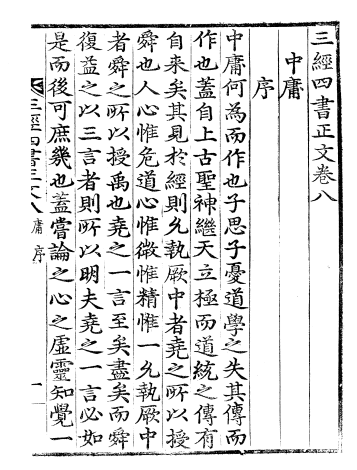 三經四書正文卷八
中庸
序
中庸何爲而作也子思子憂道學之失其傳而
作也蓋自上古聖神繼天立極而道統之傳有
自来矣其見於經則允執厥中者堯之所以授
舜也人心惟危道心惟微惟精惟一允執厥中
者舜之所以授禹也堯之一言至矣盡矣而舜
復益之以三言者則所以明夫堯之一言必如
是而後可庶幾也蓋嘗論之心之虛靈知覺一
三經四書正文八
庸序
一